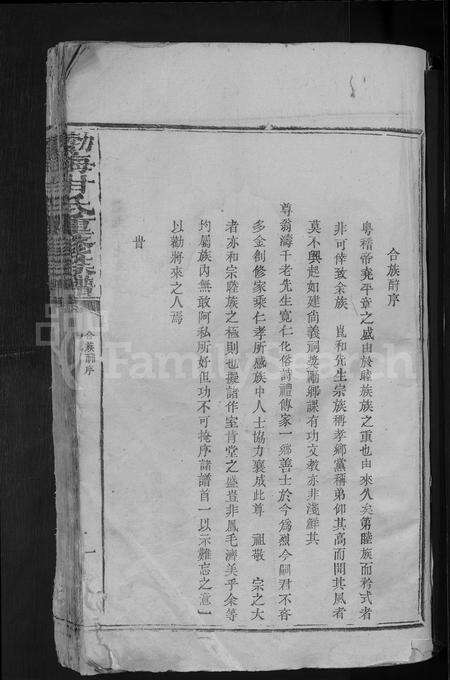 合族酧序
粵稽帝堯平章之盛由於睦族族之重也由來久矣第睦族而矜式者
非可倖致余族 崑和先生宗族稱孝鄉黨稱弟仰其高而聞其風者
莫不興起如建尚義祠奬勵鄉課有功文教亦非淺鮮其
尊翁濤千老先生寬仁化俗詩禮傳家一鄉善士於今爲烈今嗣君不吝
多金創修家乘仁孝所感族中人士協力襄成此尊 祖敬 宗之大
者亦和宗睦族之極則也擬諸作室肯堂之盛豈非鳳毛濟美乎余等
均屬族內無敢阿私所好但功不可掩序諸譜首一以示難忘之意一
以勸將來之人焉
旹
渤海甘氏重修族譜
合族酧序
一
FamilySearch